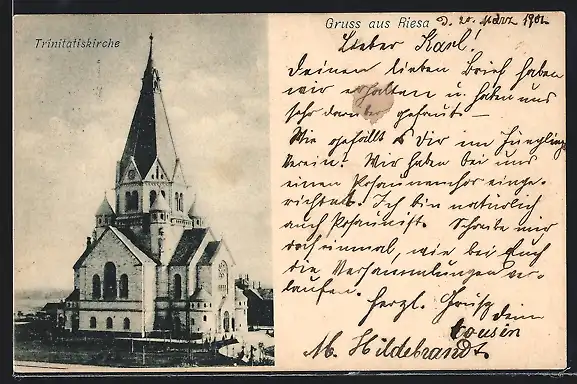 Trinitatiskirche
Gruss aus Riesa d. 20. März 1902
Lieber Karl!
Deinen lieben Brief haben
wir erhalten u. haben uns
sehr darüber gefreut –
Wie gefällt es Dir im Jünglings
Verein? Wir haben bei uns
einen Posaunenchor einge-
richtet. Ich bin natürlich
auch Posaunist. Schreibe mir
doch einmal, wie bei Euch
die Versammlungen ver-
laufen. Herzl. Gruß
Dein
Cousin
M. Hildebrandt.